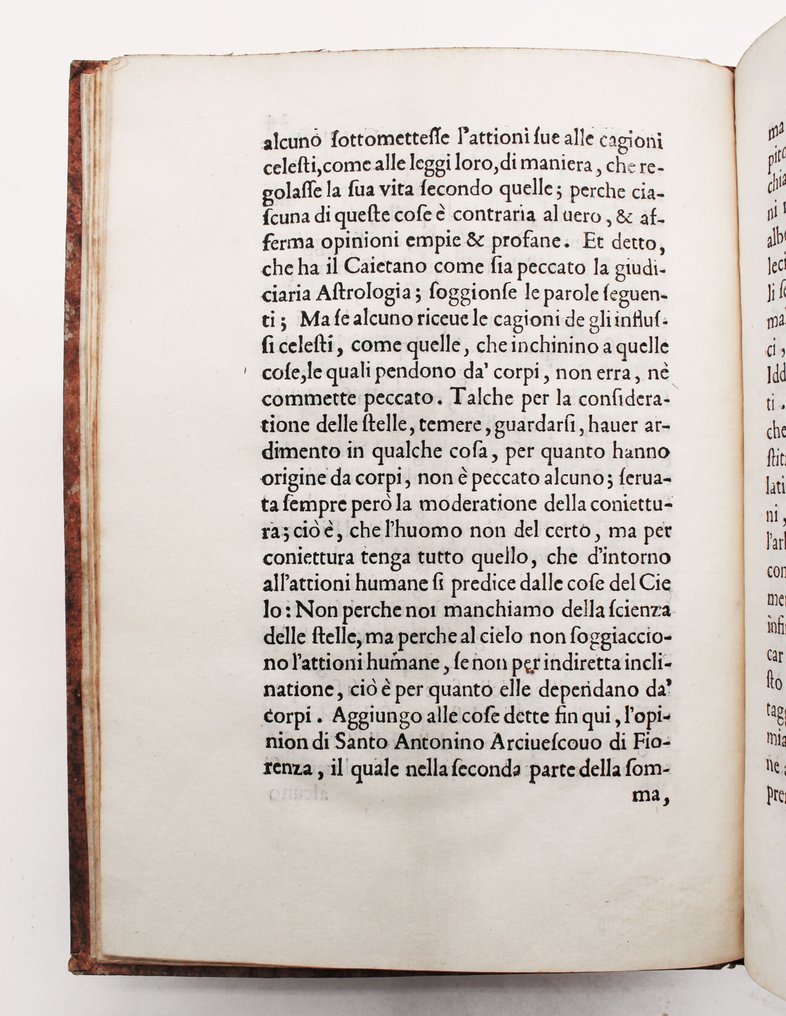 alcuno ſottometteſſe l'attioni ſue alle cagioni
celeſti,come alle leggi loro,di maniera, che re-
golaſſe la ſua vita ſecondo quelle; perche cia-
ſcuna di queſte coſe è contraria al uero, & af-
ferma opinioni empie & profane. Et detto,
che ha il Caietano come ſia peccato la giudi-
ciaria Aſtrologia; ſoggionſe le parole ſeguen-
ti; Ma ſe alcuno riceue le cagioni de gli influſ-
ſi celeſti, come quelle, che inchinino a quelle
coſe,le quali pendono da' corpi, non erra, nè
commette peccato. Talche per la conſidera-
tione delle ſtelle, temere, guardarſi, hauer ar-
dimento in qualche coſa, per quanto hanno
origine da corpi, non è peccato alcuno; ſerua-
ta ſempre però la moderatione della coniettu-
ra; ciò è, che l'huomo non del certo, ma per
coniettura tenga tutto quello, che d'intorno
all'attioni humane ſi predice dalle coſe del Cie
lo: Non perche noi manchiamo della ſcienza
delle ſtelle, ma perche al cielo non ſoggiaccio-
no l'attioni humane, ſe non per indiretta incli-
natione, ciò è per quanto elle dependano da'
corpi. Aggiungo alle coſe dette fin qui, l'opi-
nion di Santo Antonino Arciueſcouo di Fio-
renza, il quale nella ſeconda parte della ſom-
ma,